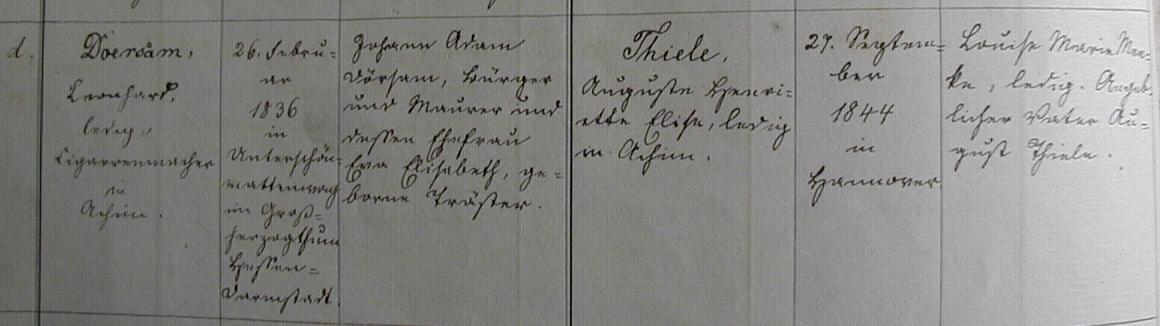 d.
Doersam,
Leonhard,
ledig,
Cigarrenmacher
in
Achim.
26. Febru=
ar
1836
in
Unterschön=
mattenwag
im Groß=
herzogthum
Hessen=
Darmstadt.
Johann Adam
Dörsam, Bürger
und Maurer und
dessen Ehefrau
Eva Elisabeth, ge=
borne Träster.
Thiele,
Auguste Henri=
ette Elise, ledig
in Achim.
27. Septem=
ber
1844
in
Hannover
Louise Marie Men=
ke, ledig. Angeb=
licher Vater Au=
gust Thiele.